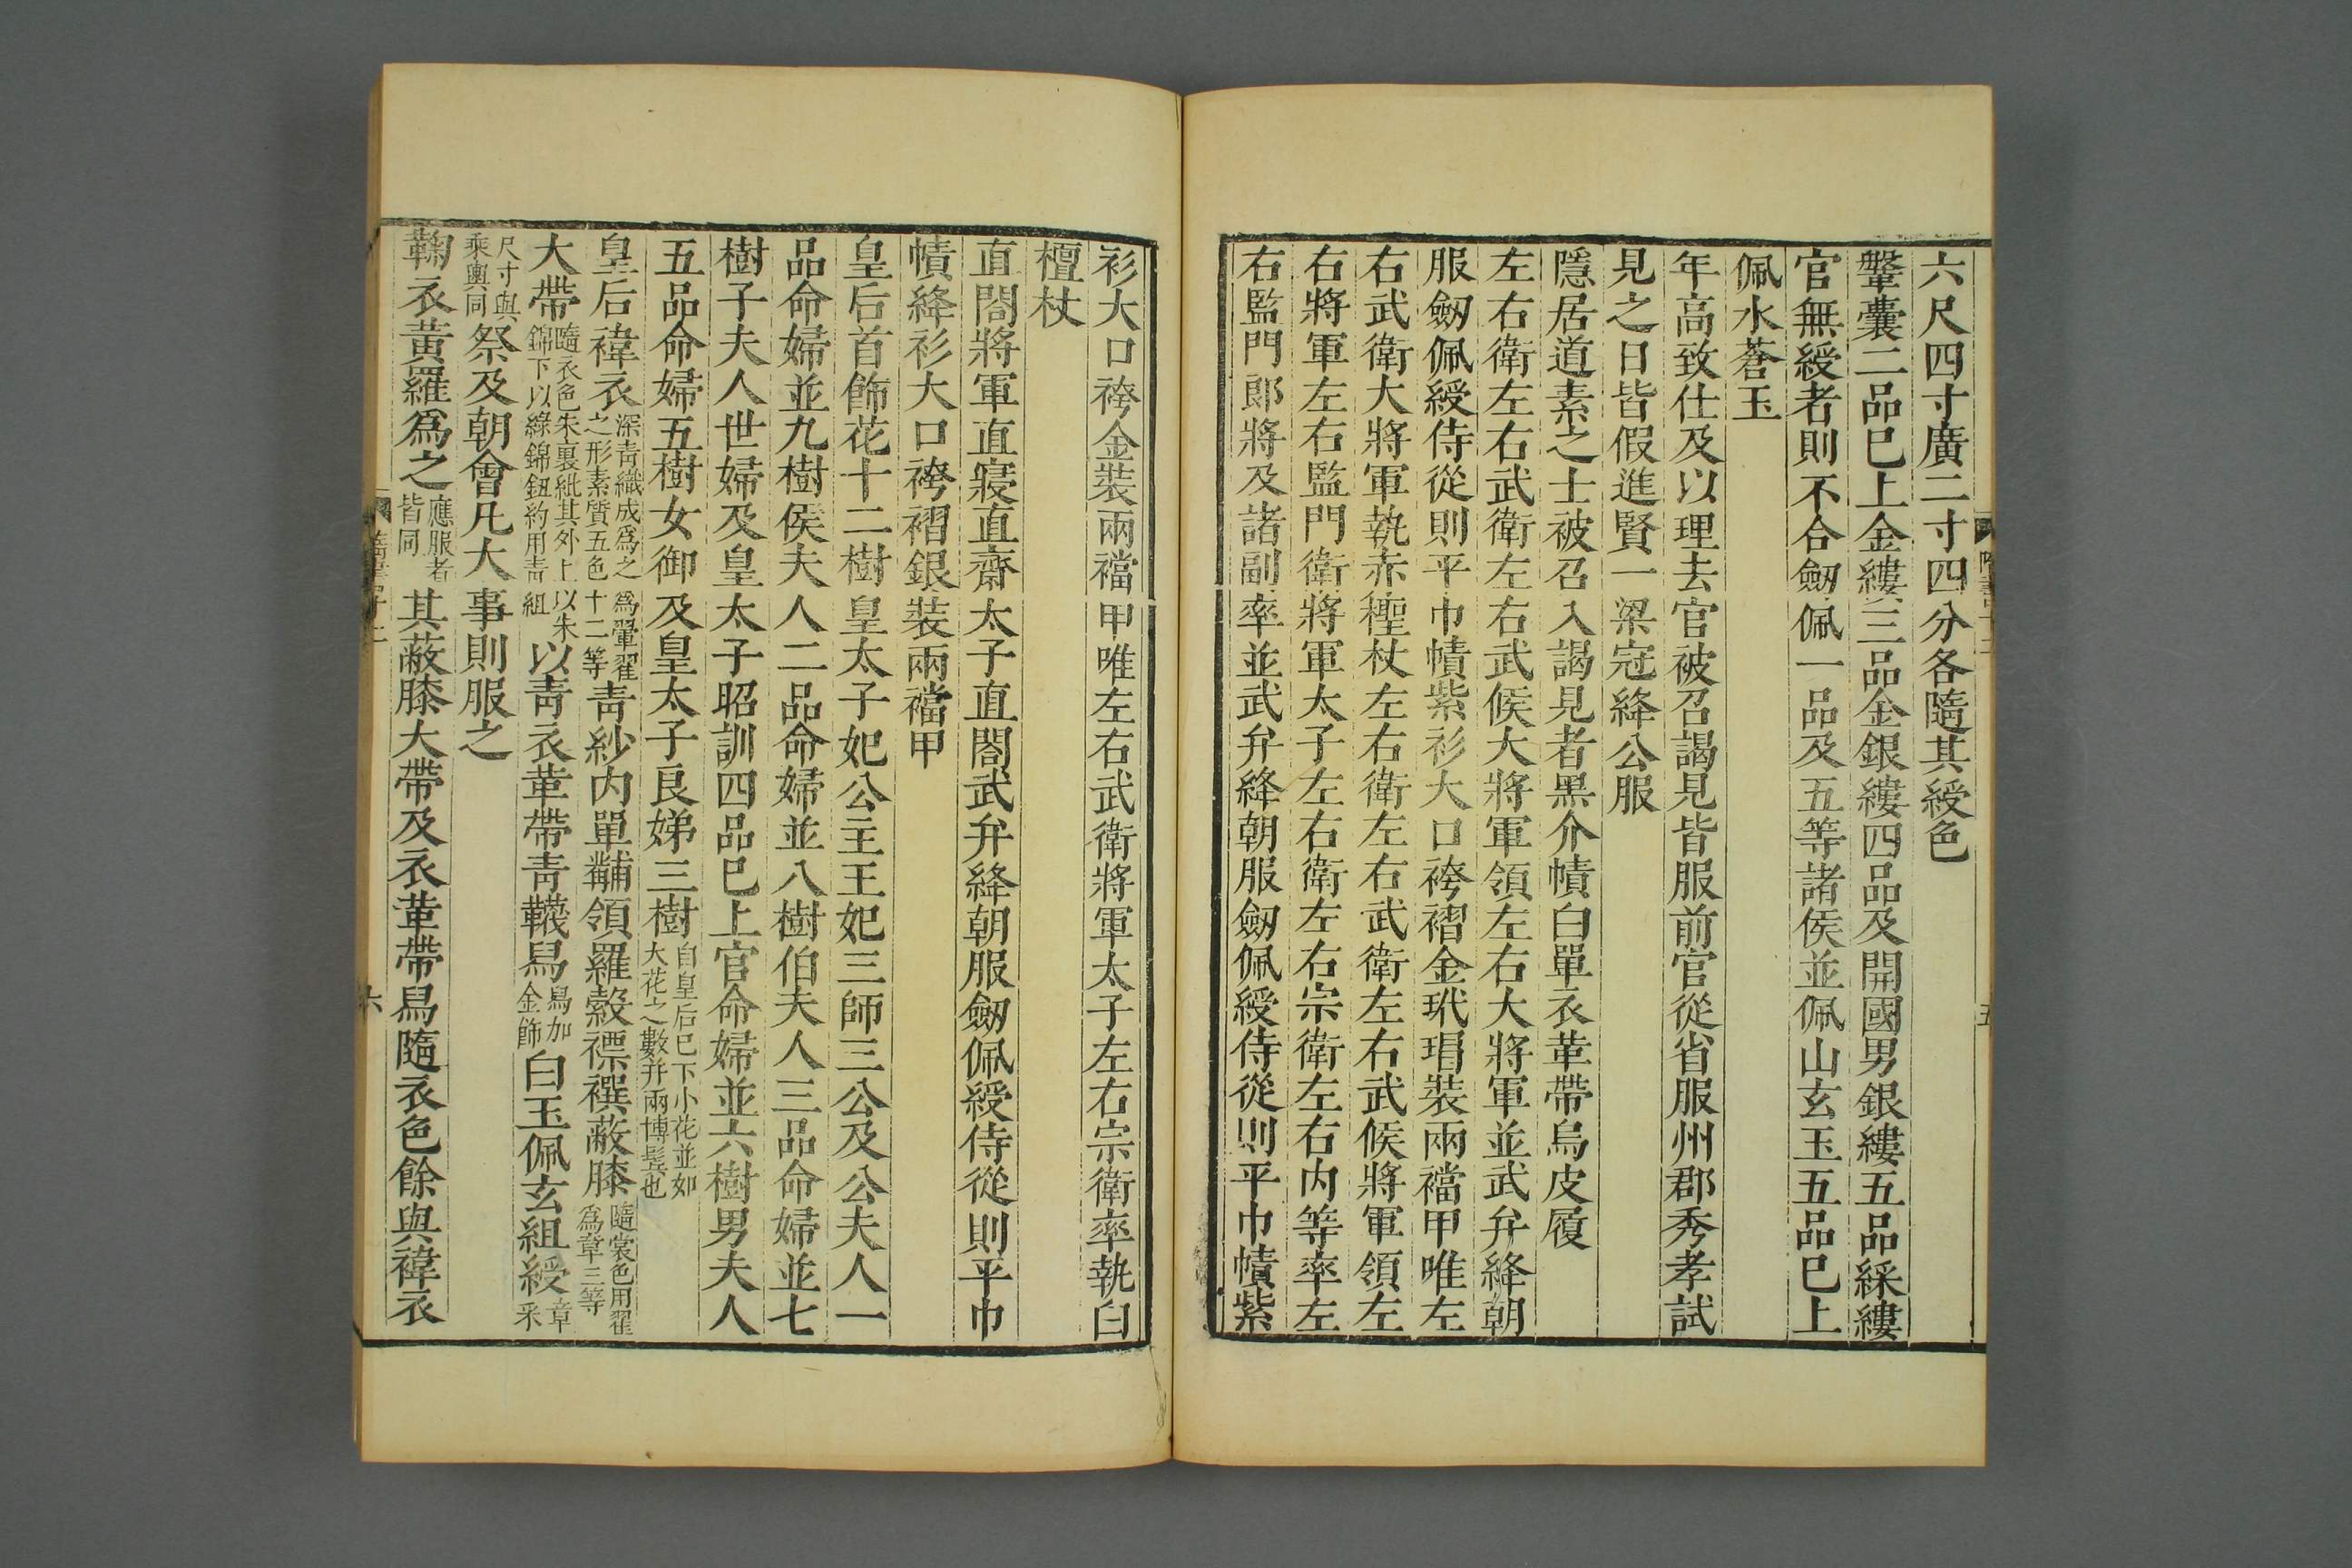 六尺四寸廣二寸四分各隨其綬色
鞶囊二品巳上金縷三品金銀縷四品及開國男銀縷五品綵縷
官無綬者則不合劒佩一品及五等諸侯並佩山玄玉五品巳上
佩水蒼玉
年高致仕及以理去官被召謁見皆服前官從省服州郡秀孝試
見之日皆假進賢一梁冠絳公服
隱居道素之士被召入謁見者黑介幘白單衣革帶烏皮履
左右衛左右武衛左右武候大將軍領左右大將軍並武弁絳朝
服劒佩綬侍從則平巾幘紫衫大口袴褶金玳瑁裝兩襠甲唯左
右武衛大將軍執赤檉杖左右衛左右武衛左右武候將軍領左
右將軍左右監門衛將軍太子左右衛左右宗衛左右內等率左
右監門郎將及諸副率並武弁絳朝服劒佩綬侍從則平巾幘紫
衫大口袴金裝兩襠甲唯左右武衛將軍太子左右宗衛率執白
檀杖
直閤將軍直寢直齋太子直閤武弁絳朝服劒佩綬侍從則平巾
幘絳衫大口袴褶銀裝兩襠甲
皇后首飾花十二樹皇太子妃公主王妃三師三公及公夫人一
品命婦並九樹侯夫人二品命婦並八樹伯夫人三品命婦並七
樹子夫人世婦及皇太子昭訓四品巳上官命婦並六樹男夫人
五品命婦五樹女御及皇太子良娣三樹自皇后巳下小花並如大花之數并兩博鬂也
皇后褘衣深青織成爲之爲翬翟之形素質五色十二等青紗內單黼領羅縠褾襈蔽膝隨裳色用翟爲章三等
大帶隨衣色朱裏紕其外上以朱錦下以綠錦鈕約用青組以青衣革帶青韈舄舄加金飾白玉佩玄組綬章采
尺寸與乘輿同祭及朝會凡大事則服之
鞠衣黃羅爲之應服者皆同其蔽膝大帶及衣革帶舄隨衣色餘與褘衣
六
五